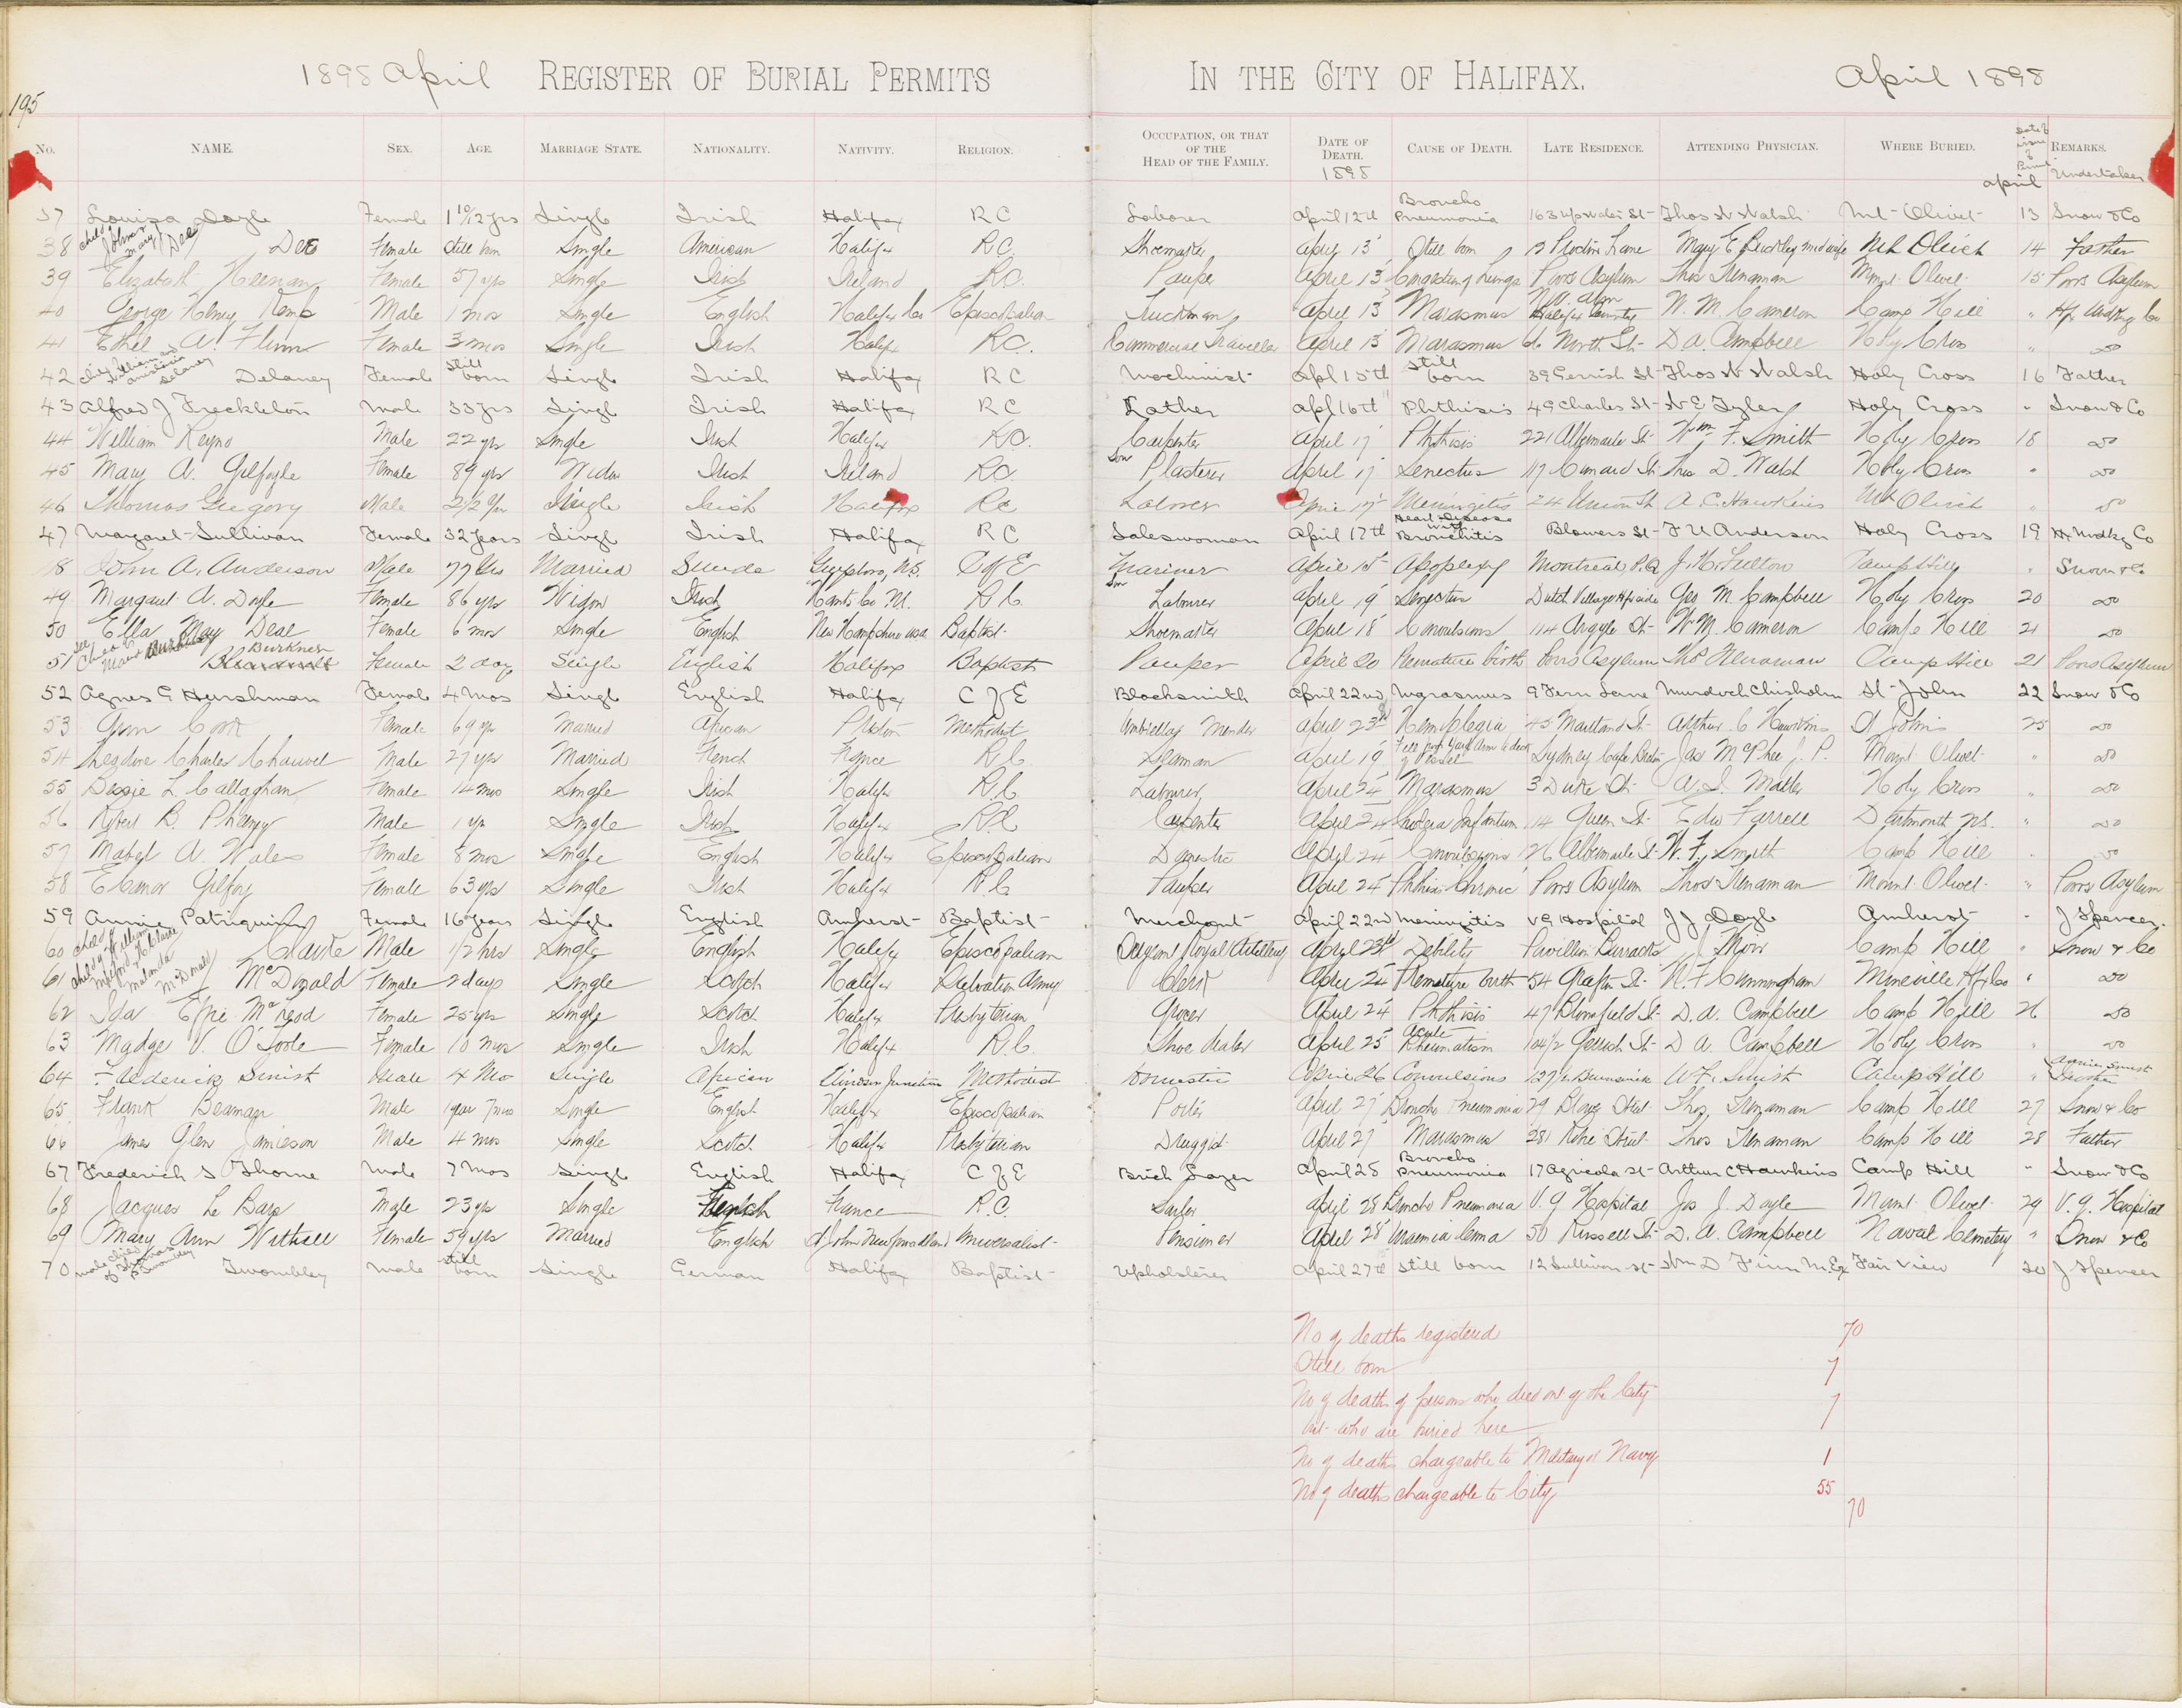 195
1898 April REGISTER OF BURIAL PERMITS IN THE CITY OF HALIFAX. April 1898
No. NAME. SEX. AGE. MARRIAGE STATE. NATIONALITY. NATIVITY. RELIGION. OCCUPATION, OR THAT OF THE HEAD OF THE FAMILY. DATE OF DEATH. 1898 CAUSE OF DEATH. LATE RESIDENCE. ATTENDING PHYSICIAN. WHERE BURIED. Date of issue of Burial April REMARKS. Undertaker
37 Louisa Doyle Female 1 10/12 yrs Single Irish Halifax R C Laborer April 12th Broncho Pneumonia 163 Up Water St Thos W Walsh Mt Olivet 13 Snow & Co
38 child of John & Mary Dee Dee Female Still born Single American Halifax R.C. Shoemaker April 13 Still born Lane Mary E Buckley midwife Mt Olivet 14 Father
39 Elizabeth Keenan Female 57 yrs Single Irish Ireland R.C. Pauper April 13 Congestion of Lungs Poors Asylum Thos Trenaman Mount Olivet 15 Poors Asylum
40 George Henry Kemp Male 1 mos Single English Halifax Co Episcopalian Truckman April 13 Marasmus N.W. Arm Halifax County W. M. Cameron Camp Hill " Hfx Undtkg Co
41 Ethel A. Flinn Female 3 mos Single Irish Halifx R.C. Commercial Traveller April 13 Marasmus North St D A. Campbell Holy Cross " do
42 child of William and Delaney Delaney Female Still born Single Irish Halifax R C Machinist Apl 15th Still born 39 Gerrish St Thos W Walsh Holy Cross 16 Father
43 Alfred J Freckleton Male 33 yrs Single Irish Halifax R C Lather Apl 16th Phthisis 49 Charles St Holy Cross " Snow & Co
44 William Reyno Male 22 yrs Single Irish Halifx R.C. Carpenter April 17 Phthisis 221 Albermarle St Wm F. Smith Holy Cross 18 do
45 Mary A. Gilfoyle Female 89 yrs Widow Irish Ireland R.C. Son Plasterer April 17 Senectus 117 Cunard St Thos D. Walsh Holy Cross " do
46 Thomas Gregory Male 2 1/2 Yrs Single Irish Halifax R C Laborer April 17 Meningitis 24 Union St A. C. Hawkins Mt Olivet " do
47 Margaret Sullivan Female 32 years Single Irish Halifax R C Saleswoman April 17th Heart Disease with Bronchitis Blowers St F U Anderson Holy Cross 19 Hx Undkg Co
48 John A. Anderson Male 77 Yrs Married N.S. C of E Mariner April 15 Apoplexy Montreal P.Q J. H. Fulton Camp Hill " Snow & Co
49 Margaret A. Doyle Female 86 yrs Widow Irish Hants Co N.S. R.C. Son Labourer April 19 Senectus Dutch Village Hfx side Geo M. Campbell Holy Cross 20 do
50 Ella May Deal Female 6 mos Single English New Hampshire USA Baptist Shoemaker April 18 Convulsions 114 Argyle St W. M. Cameron Camp Hill 21 do
51 Burkner Female 2 days Single English Halifax Baptist Pauper April 20 Premature birth Poors Asylum Thos Trenaman Camp Hill 21 Poors Asylum
52 Agnes G Hurshman Female 4 Mos Single English Halifax C of E Blacksmith April 22nd Marasmus 9 Fern Lane Murdoch Chisholm St John 22 Snow & Co
53 Ann Cook Female 69 yrs Married African Preston Methodist Umbrella Mender April 23rd Hemiplegia 45 Maitland St Arthur C Hawkins St Johns 25 do
54 Charles Chauvel Male 27 yrs Married French France R C Seaman April 19 Fell from Yard Arm to deck of vessel Sydney Cape Breton Jas McPhee J. P. Mount Olivet " do
55 Bessie L Callaghan Female 14 mos Single Irish Halifx R.C. Labourer April 24 Marasmus 3 Duke St A. I. Mader Holy Cross " do
56 Robert B. Phelan Male 1 yr Single Irish Halifax R.C Carpenter April 24 Cholera Infantum 14 Queen St Edw Farrell Dartmouth N.S. " do
57 Mabel A. Wales Female 8 mos Single English Halifx Episcopalian Domestic April 24 Convulsions 126 Albermarle St W. F. Smith Camp Hill " do
58 Eleanor Gilfoy Female 63 yrs Single Irish Halifx R.C. Pauper April 24 Phthisis Chronic Poors Asylum Thos Trenaman Mount Olivet " Poors Asylum
59 Annie Patriquin Female 16 Years Single English Amherst Baptist Merchant April 22nd Meningitis V G Hospital J J Doyle Amherst " J Spencer
60 child of William Clarke Male 1/2 hrs Single English Halifx Episcopalian Sergeant Royal Artillery April 23rd Debility Pavillion Barracks J. Moir Camp Hill " Snow & Co
61 child of & Matanda McDonald McDonald Female 2 days Single Scotch Halifax Salvation Army Clerk April 24 Premature birth 54 Grafton St N. F. Cunningham Mineville Hfx Co " do
62 Ida Effie McLeod Female 25 yrs Single Scotch Halifx Presbyterian Grocer April 24 Phthisis 47 Bloomfield St D. A. Campbell Camp Hill 26 do
63 Madge V. O'Toole Female 10 mos Single Irish Halifx R.C. Shoe dealer April 25 Acute Rheumatism 104 1/2 Gerrish St D A. Campbell Holy Cross " do
64 Frederick Smith Male 4 Mo Single African Windsor Junction Methodist Domestic April 26 Convulsions 127 1/2 Brunswick W. F. Smith Camp Hill "
65 Frank Beaman Male 1 year 7 mos Single English Halifx Episcopalian Porter April 27 Broncho Pneumonia 29 Street Thos. Trenaman Camp Hill 27 Snow & Co
66 James Glen Jamieson Male 4 mos Single Scotch Halifx Presbyterian Druggist April 27 Marasmus 281 Robie Street Thos Trenaman Camp Hill 28 Father
67 Frederick S Thorne Male 7 Mos Single English Halifax C of E Brick Layer April 28 Broncho Pneumonia 17 Agricola St Arthur C Hawkins Camp Hill " Snow & Co
68 Jacques Le Bars Male 23 yrs Single French France R.C. Sailor April 28 Broncho Pneumonia V. G Hospital Jos J. Doyle Mount Olivet 29 V. G. Hospital
69 Mary Ann Withall Female 59 yrs Married English St John Newfoundland Universalist Pensioner April 28 Uraemia Coma 50 Russell St D. A. Campbell Naval Cemetery " Snow & Co
70 male child of Twombley Twombley Male Still born Single German Halifax Baptist Upholsterer April 27th Still born 12 Sullivan St Wm D Finn M. Ex Fair View 30 J Spencer
No of deaths registered 70
Still born 7
No of deaths of persons who died out of the City 7
but who are buried here
No of deaths chargeable to Military or Navy 1
No of deaths chargeable to City 55
70